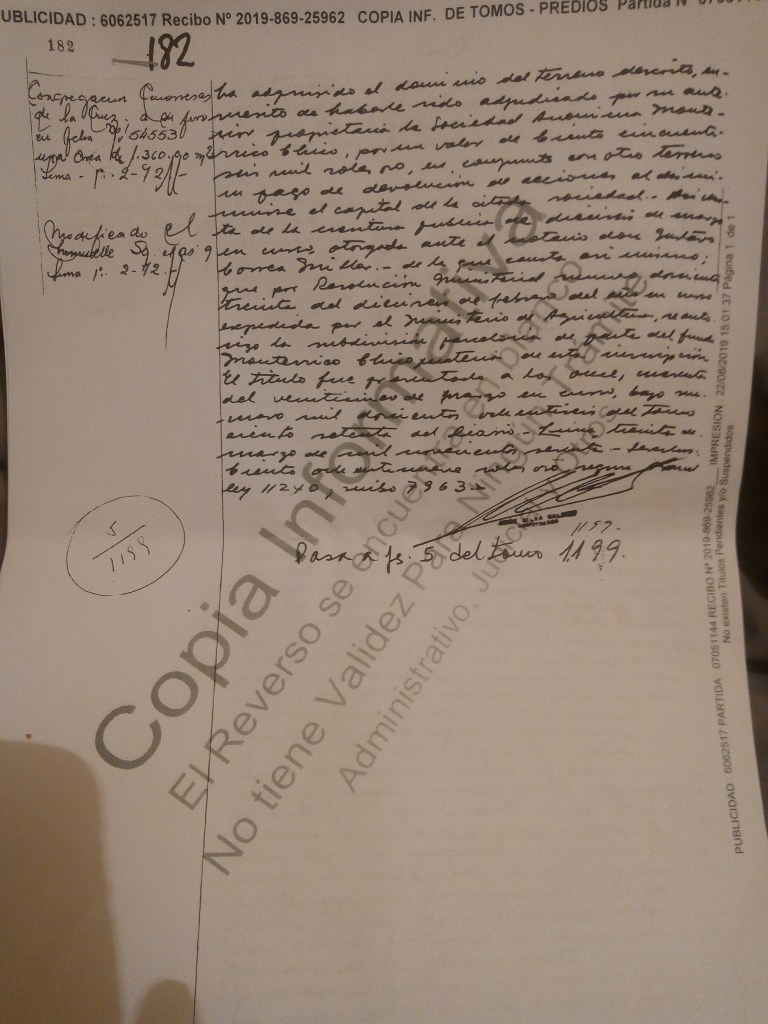 PUBLICIDAD : 6062517 Recibo Nº 2019-869-25962 COPIA INF. DE TOMOS - PREDIOS Partida Nº
182
182
Congregacion
de la Cruz
en ficha 54553
una area de 1.300.00 m2
Lima - 2-92
Modificado el
Lima 2-92.-
ha adquirido el dominio del terreno descrito, en
merito de haberle sido adjudicado por su ante-
rior propietaria la Sociedad Anonima Monte-
rrico Chico, por un valor de ciento cincuenti-
seis mil soles oro, en conjunto con otro terreno
en pago de devolución de acciones al dismi-
nuirse el capital de la citada sociedad.- Asi cons-
ta de la escritura publica de dieciseis de marzo
en curso, otorgada ante el notario don Gustavo
Correa Miller.- de la que consta asi mismo;
que por Resolución Ministerial numero doscientos
treinta del dieciseis de febrero del año en curso
expedida por el Ministerio de Agricultura, se auto-
rizo la subdivisión parcelaria de parte del fundo
Monterrico Chico materia de esta inscripción
El título fue presentado a las once, cincuenta
del veinticinco de marzo en curso, bajo nu-
mero mil doscientos del tomo
ciento setenta del Diario.- Lima, treinta de
marzo de mil novecientos setenta.- Derechos
ciento ochentinueve soles oro, segun
ley 11240, recibo 7963.-
5
1199
1159-
Pasa a fs. 5 del tomo 1199.
Copia Informativa
El Reverso se encuentra en blanco
No tiene Validez Para Ningún Trámite
Administrativo, Judicial u Otros
PUBLICIDAD : 6062517 PARTIDA 07051144 RECIBO Nº 2019-869-25962 IMPRESION 22/08/2019 15:01:37 Página 1 de 1
No existen Títulos Pendientes y/o Suspendidos